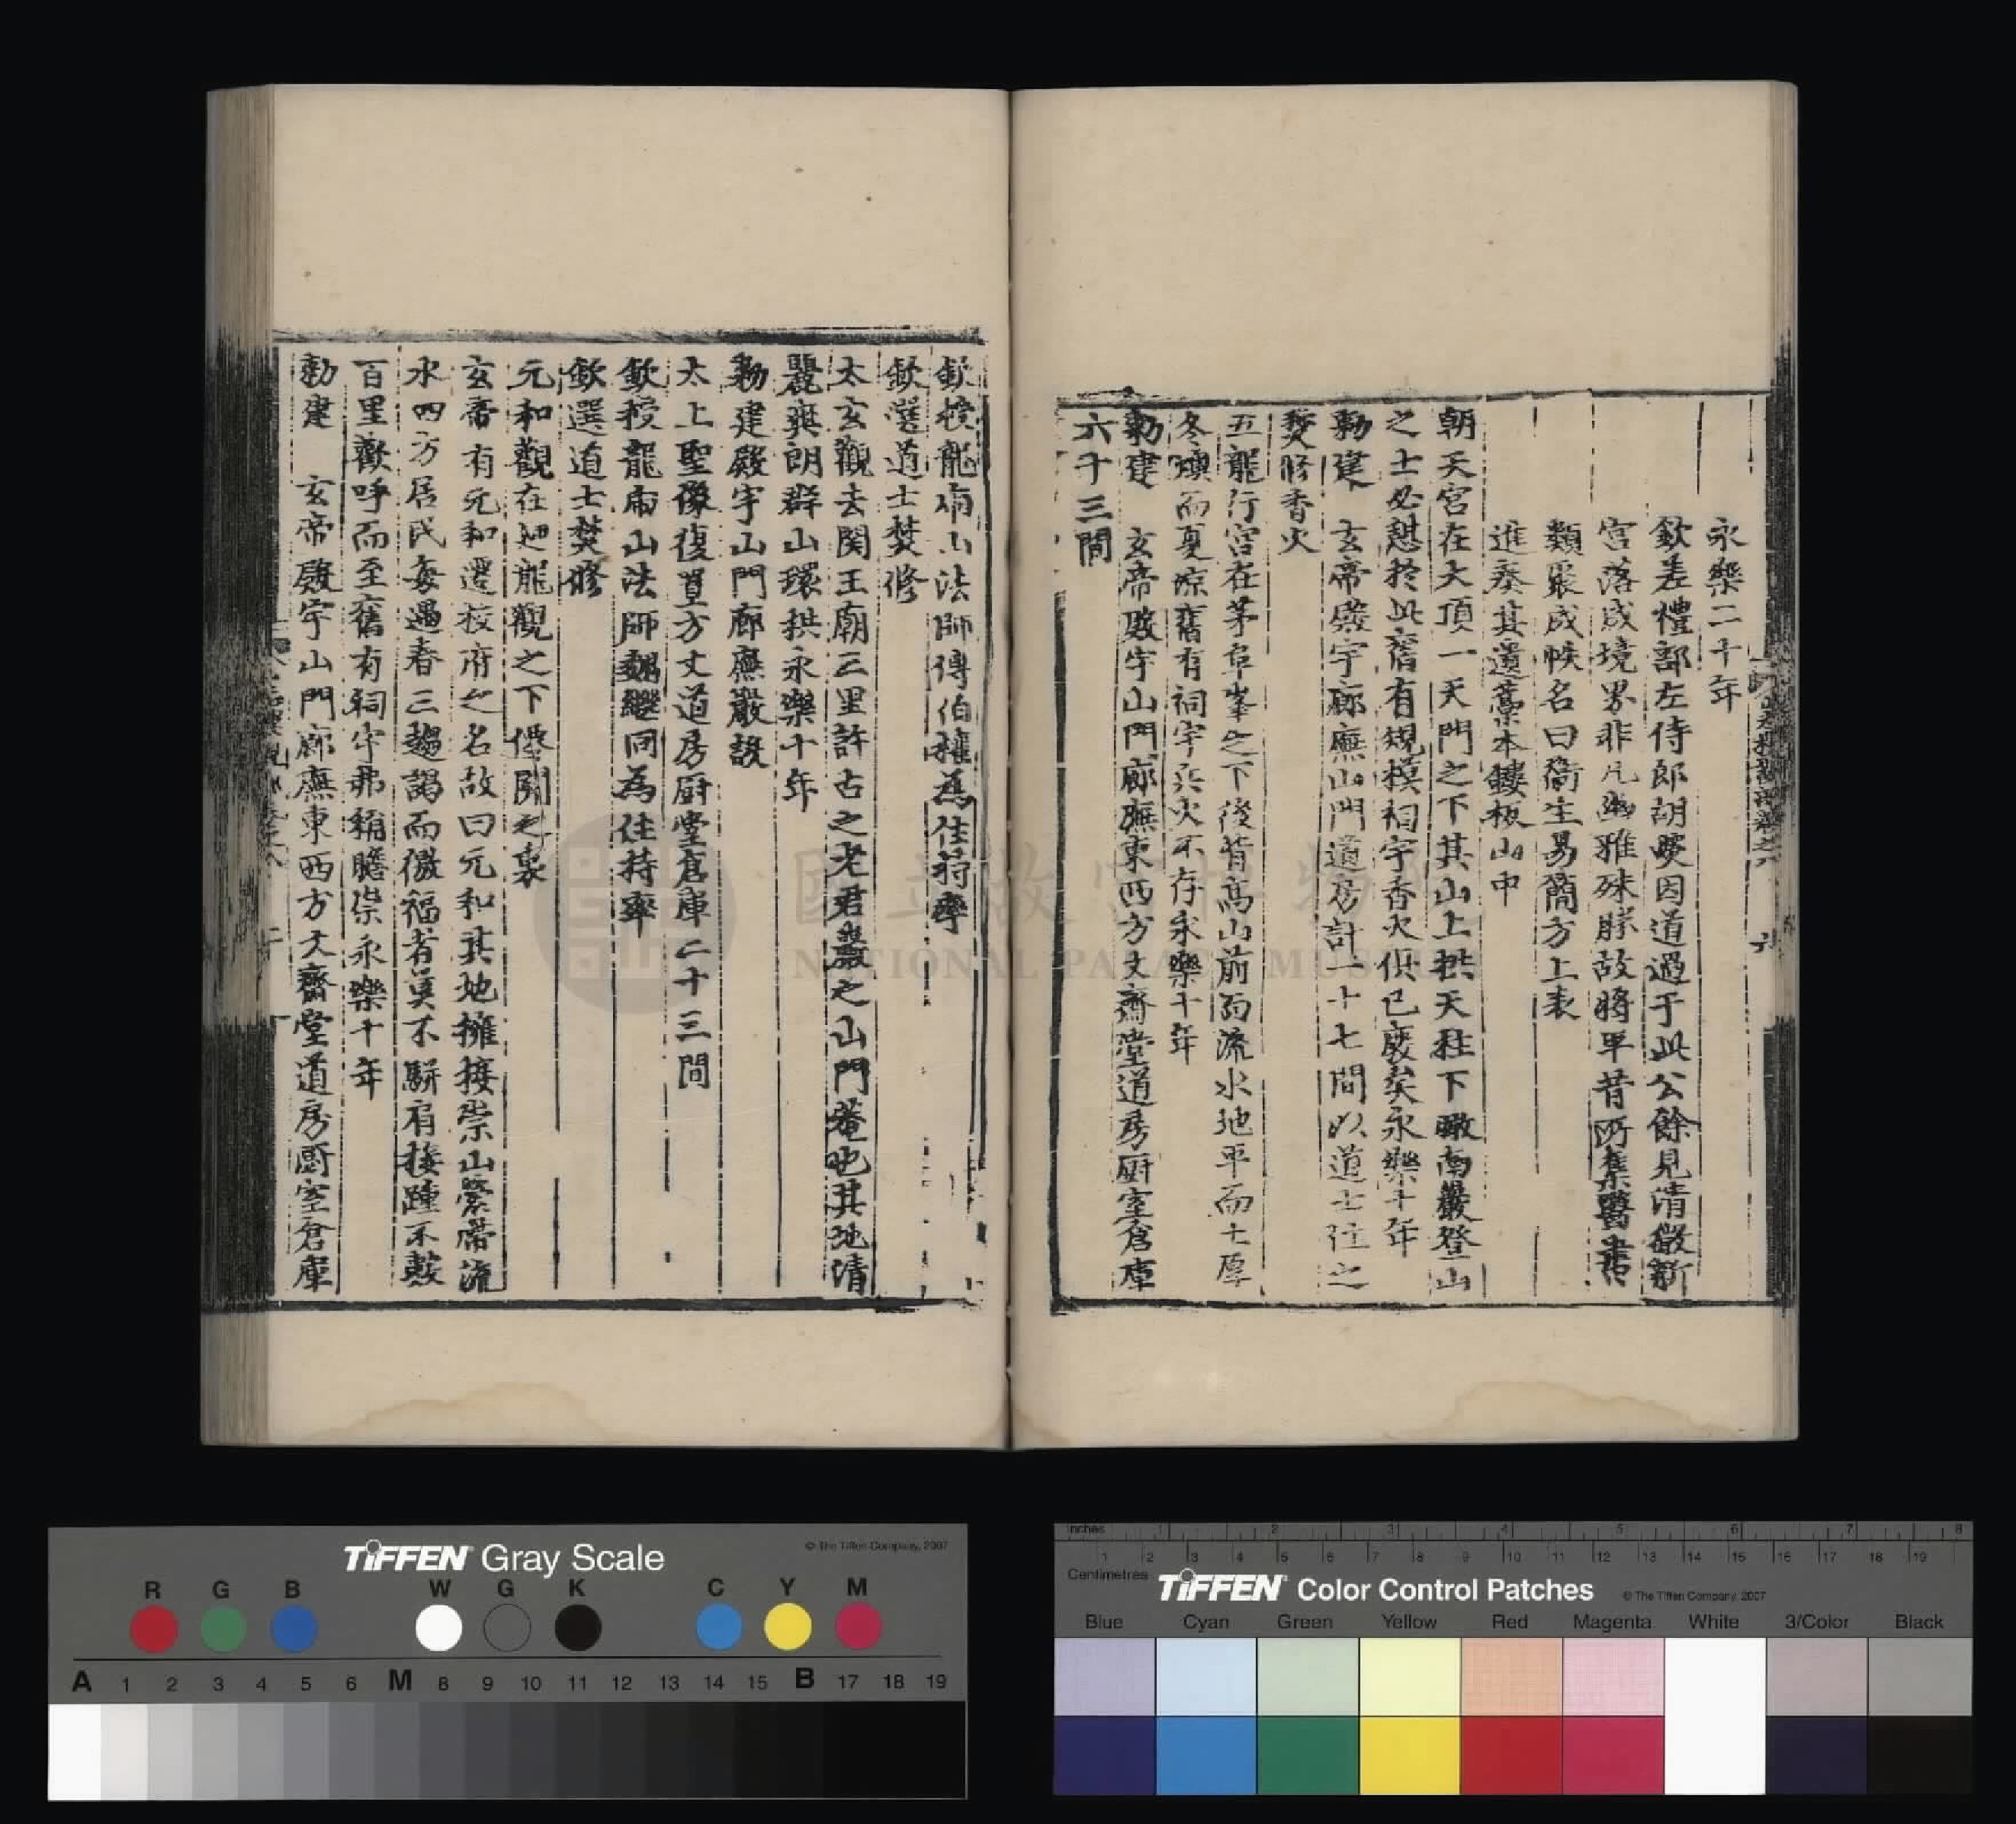 永樂二十年
欽差禮部左侍郎胡濙因道過于此公餘見清微新
宮落成境界非凡幽雅殊勝故將平昔所集醫書
類聚成帙名曰衛生易簡方上表
進奏其遺藁本鏤板山中
朝天宮在大頂一天門之下其山上拱天柱下瞰南巖登山
之士必憩於此舊有規模祠宇香火俱已廢矣永樂十年
勑建 玄帝殿宇廊廡山門道房計一十七間以道士往之
焚修香火
五龍行宮在茅阜峯之下後背高山前面流水地平而土厚
冬燠而夏凉舊有祠宇兵火不存永樂十年
勑建 玄帝殿宇山門廊廡東西方丈齋堂道房廚室倉庫
六十三間
欽授龍虎山法師傅伯權為住持率
欽選道士焚修
太玄觀去関王廟三里許古之老君巖之山門菴也其地清
麗爽朗群山環拱永樂十年
勑建殿宇山門廊廡嚴設
太上聖像復置方丈道房廚堂倉庫二十三間
欽授龍虎山法師魏繼同為住持率
欽選道士焚修
元和觀在廻龍觀之下僊關之裏
玄帝有元和遷校府之名故曰元和其地擁接崇山縈帶流
水四方居民每遇春三趨謁而徼福者莫不駢肩接踵不數
百里歡呼而至舊有祠宇弗稱瞻崇永樂十年
勑建 玄帝殿宇山門廊廡東西方丈齋堂道房廚室倉庫
國立故宮博物院
NATIONAL PALACE MUSEUM
TIFFEN Gray Scale
© The Tiffen Company, 2007
R G B W G K C Y M
A 1 2 3 4 5 6 M 8 9 10 11 12 13 14 15 B 17 18 19
Inches 1 2 3 4 5 6 7 8
1 2 3 4 5 6 7 8 9 10 11 12 13 14 15 16 17 18 19
Centimetres
TIFFEN Color Control Patches
© The Tiffen Company, 2007
Blue Cyan Green Yellow Red Magenta White 3/Color Black